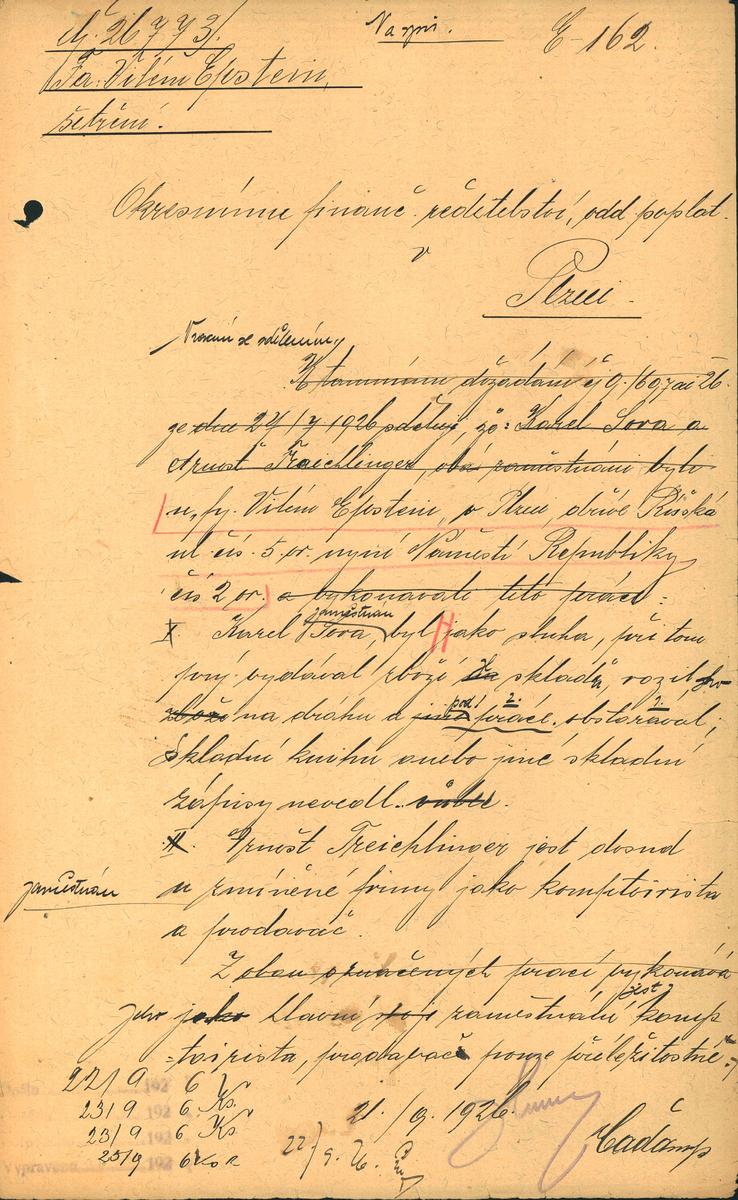 čj. 26773/
Na spis.
E-162.
Fa. Vilém Epstein,
šetření.
Okresnímu finanč. ředitelství, odd. poplat.
v
Plzni.
Vrácení se sdělením,
K tamnímu dožádání čj 9.160,7 ai 26
ze dne 27/7 1926 sděluji, že: Karel Sova a
Arnošt Treichlinger, oba zaměstnáni byli
u „fy. Vilém Epstein„ v Plzni, dříve Říšská
ul. čís. 5. or. nyní Náměstí Republiky
čís 2 or. a vykonávali tito práce:
I. Karel Sova, zaměstnán byl jako sluha, při tom
prý vydával zboží ze skladu, vozil ho
zboží na dráhu a jiné pod. práce 2. obstarával 1.;
Skladní knihu anebo jiné skladní
zápisy nevedl. vůbec.
II. Ernošt Treichlinger jest dosud
zaměstnán
u zmíněné firmy jako komptoirista
a prodavač.
Z obou označených prací vykonává
jako hlavní stojí zaměstnání jest komp
-toirista, prodavač pouze příležitostně.
22/9 192 6
23/9 192 6 Ks.
23/9 192 6 Ks
Vypraveno 25/9 192 6
21./9. 1926.
22/9. 26.